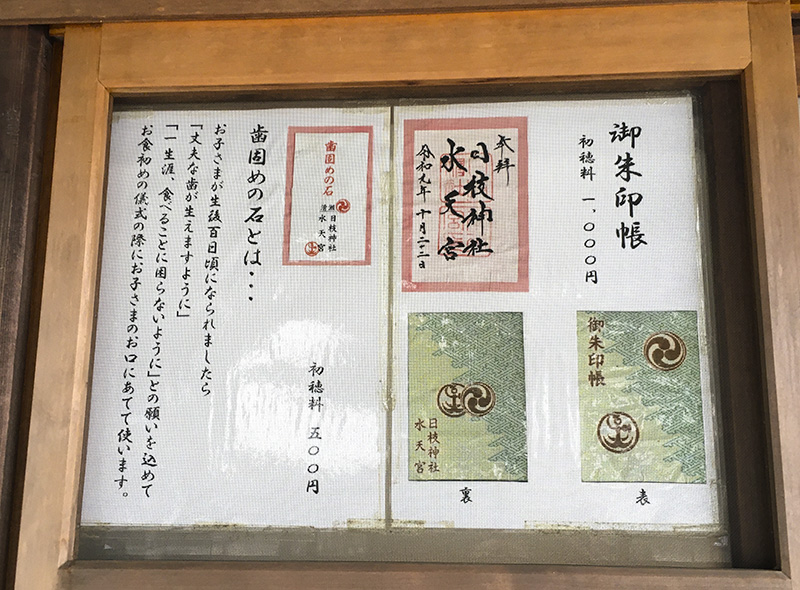 御朱印帳
初穂料 一,〇〇〇円
奉拝
日枝神社
水天宮
令和元年 十月二十二日
御朱印帳
表
日枝神社
水天宮
裏
歯固めの石
日枝神社
水天宮
初穂料 五〇〇円
歯固めの石とは・・・
お子さまが生後百日頃になられましたら
「丈夫な歯が生えますように」
「一生涯、食べることに困らないように」との願いを込めて
お食初めの儀式の際にお子さまのお口にあてて使います。